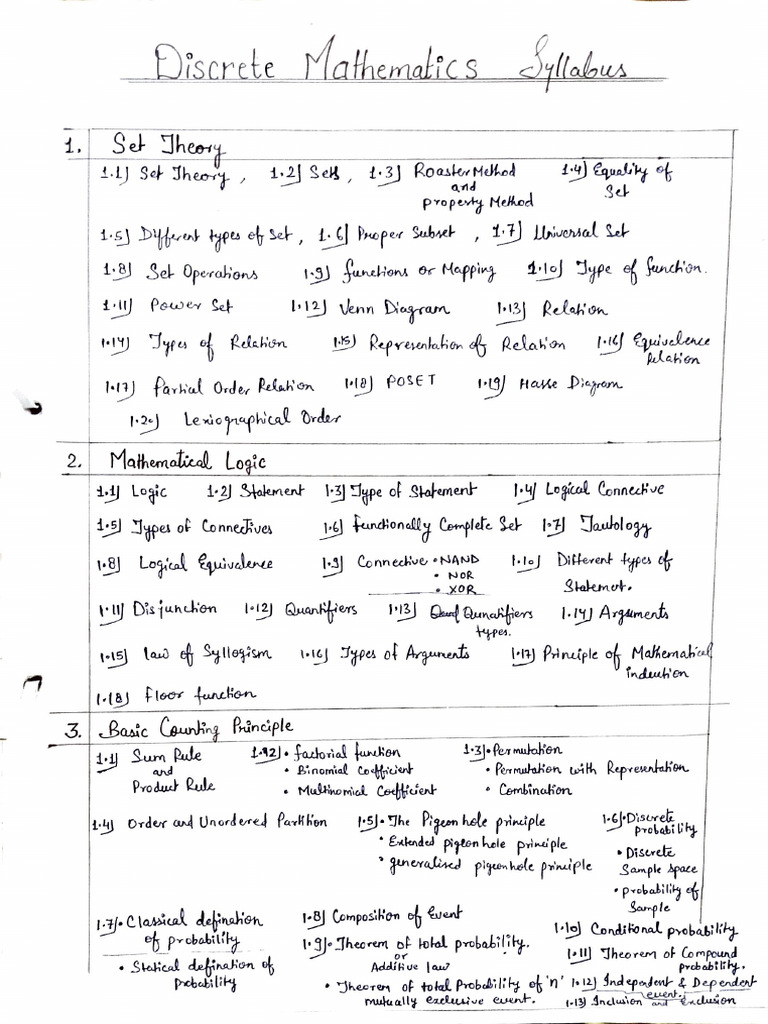 Discrete Mathematics Syllabus
1. Set Theory
1.1) Set Theory, 1.2) Sets, 1.3) Roaster Method and property Method 1.4) Equality of Set
1.5) Different types of Set, 1.6) Proper Subset, 1.7) Universal Set
1.8) Set Operations 1.9) functions or Mapping 1.10) Type of function.
1.11) Power Set 1.12) Venn Diagram 1.13) Relation
1.14) Types of Relation 1.15) Representation of Relation 1.16) Equivelence Relation
1.17) Partial Order Relation 1.18) POSET 1.19) Hasse Diagram
1.20) Lexiographical Order
2. Mathematical Logic
1.1) Logic 1.2) Statement 1.3) Type of Statement 1.4) Logical Connective
1.5) Types of Connectives 1.6) Functionally Complete Set 1.7) Tautology
1.8) Logical Equivalence 1.9) Connective • NAND • NOR • XOR 1.10) Different types of Statemet.
1.11) Disjunction 1.12) Quantifiers 1.13) Qunatifiers types. 1.14) Arguments
1.15) law of Syllogism 1.16) Types of Arguments 1.17) Principle of Mathematical induction
1.18) Floor function
3. Basic Counting Principle
1.1) Sum Rule and Product Rule
1.2) • factorial function
• Binomial Coefficient
• Multinomial Coefficient
1.3) • Permutation
• Permutation with Representation
• Combination
1.4) Order and Unordered Partition
1.5) • The Pigeon hole principle
• Extended pigeonhole principle
• generalised pigeonhole principle
1.6) • Discrete probability
• Discrete Sample space
• probability of Sample
1.7) • Classical defination of probability
• Statical defination of probability
1.8) Composition of Event
1.9) • Theorem of total probability. or Additive law
• Theorem of total Probability of 'n' mutually exclusive event.
1.10) Conditional probability
1.11) Theorem of Compound probability.
1.12) Independent & Dependent event.
1.13) Inclusion and Exclusion